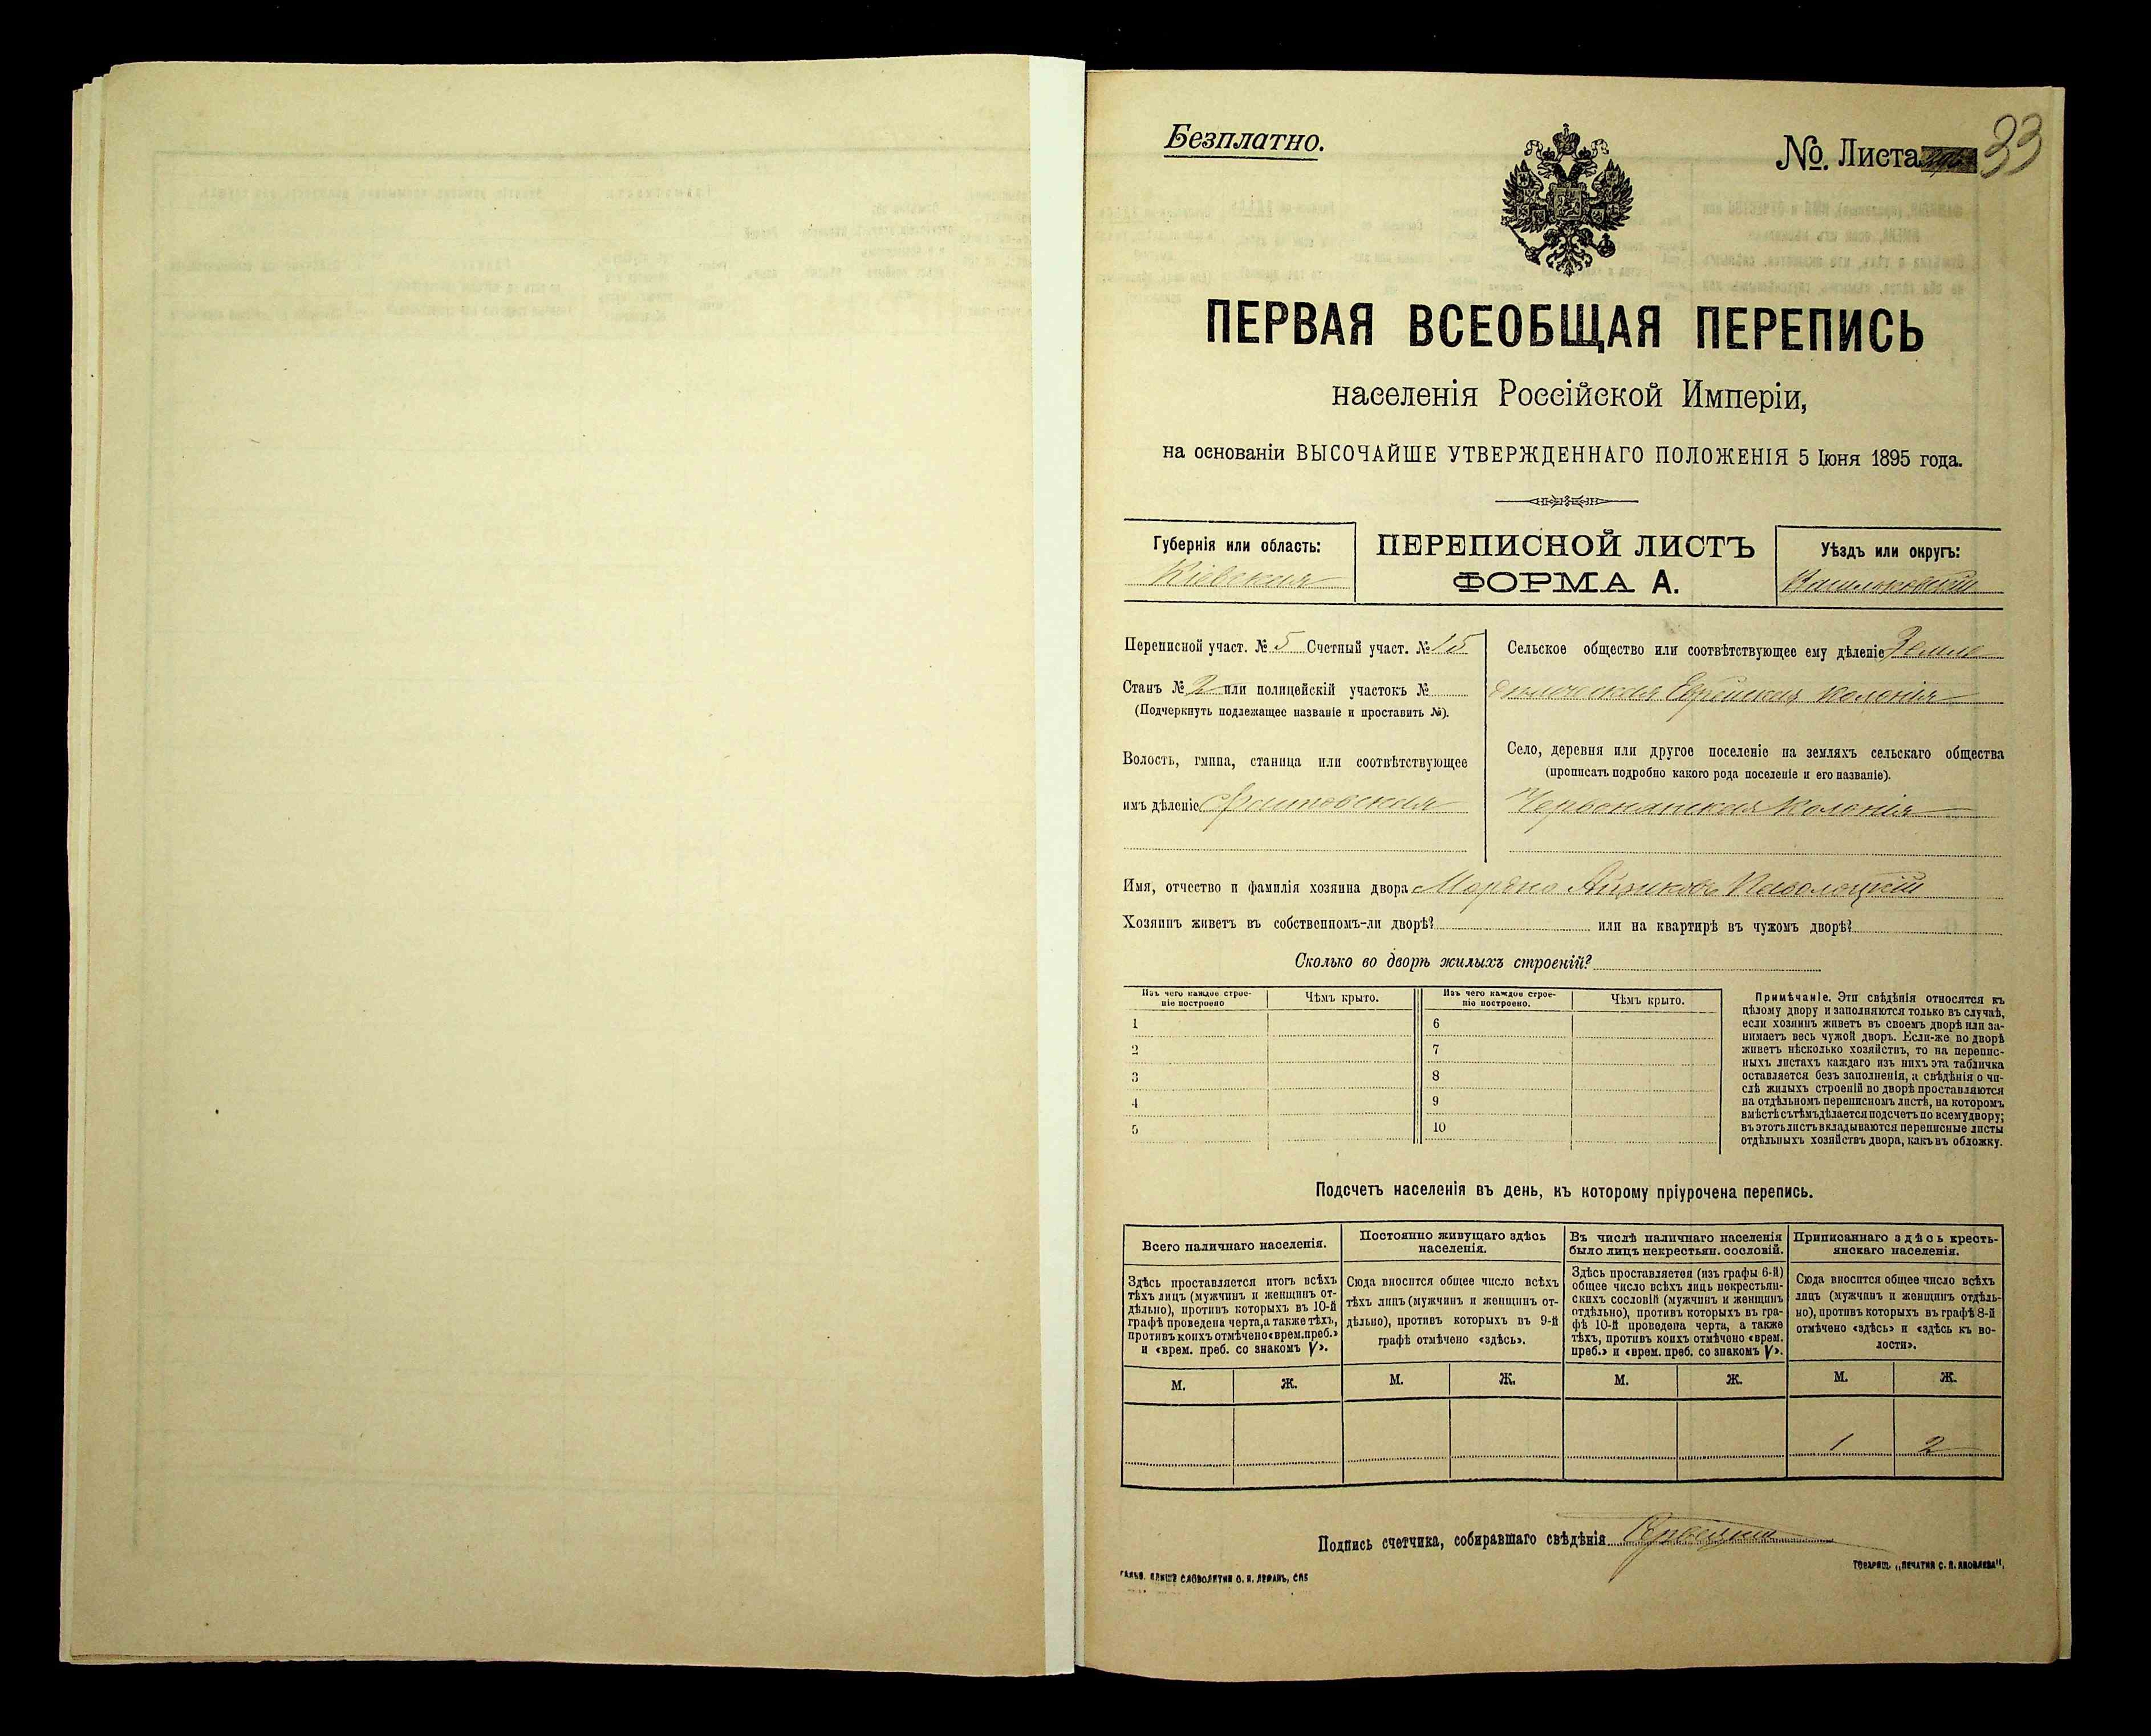 Безплатно.
№. Листа 33
ПЕРВАЯ ВСЕОБЩАЯ ПЕРЕПИСЬ
населенія Россійской Имперіи,
на основаніи ВЫСОЧАЙШЕ УТВЕРЖДЕННАГО ПОЛОЖЕНІЯ 5 Іюня 1895 года.
Губернія или область:
Кіевская
ПЕРЕПИСНОЙ ЛИСТЪ
ФОРМА А.
Уѣздъ или округъ:
Васильковскій
Переписной участ. № 5 Счетный участ. № 15
Станъ № 2 или полицейскій участокъ №
(Подчеркнуть подлежащее названіе и проставить №).
Волость, гмина, станица или соотвѣтствующее
имъ дѣленіе
Сельское общество или соотвѣтствующее ему дѣленіе Земле
дѣльческая Еврейская колонія
Село, деревня или другое поселеніе на земляхъ сельскаго общества
(прописать подробно какого рода поселеніе и его названіе).
Червонянская Колонія
Имя, отчество и фамилія хозяина двора Мордко Айзиковъ Паволоцкій
Хозяинъ живетъ въ собственномъ-ли дворѣ? или на квартирѣ въ чужомъ дворѣ?
Сколько во дворѣ жилыхъ строеній?
Изъ чего каждое строе-
ніе построено
Чѣмъ крыто.
Изъ чего каждое строе-
ніе построено.
Чѣмъ крыто.
1
2
3
4
5
6
7
8
9
10
Примѣчаніе. Эти свѣдѣнія относятся къ
цѣлому двору и заполняются только въ случаѣ,
если хозяинъ живетъ въ своемъ дворѣ или за-
нимаетъ весь чужой дворъ. Если-же во дворѣ
живетъ нѣсколько хозяйствъ, то на перепис-
ныхъ листахъ каждаго изъ нихъ эта табличка
оставляется безъ заполненія, а свѣдѣнія о чи-
слѣ жилыхъ строеній во дворѣ проставляются
на отдѣльномъ переписномъ листѣ, на которомъ
вмѣстѣ съ тѣмъ дѣлается подсчетъ по всему двору;
въ этотъ листъ вкладываются переписные листы
отдѣльныхъ хозяйствъ двора, какъ въ обложку.
Подсчетъ населенія въ день, къ которому пріурочена перепись.
Всего наличнаго населенія.
Здѣсь проставляется итогъ всѣхъ
тѣхъ лицъ (мужчинъ и женщинъ от-
дѣльно), противъ которыхъ въ 10-й
графѣ проведена черта, а также тѣхъ,
противъ коихъ отмѣчено «врем. преб.»
и «врем. преб. со знакомъ V».
М. Ж.
Постоянно живущаго здѣсь
населенія.
Сюда вносится общее число всѣхъ
тѣхъ лицъ (мужчинъ и женщинъ от-
дѣльно), противъ которыхъ въ 9-й
графѣ отмѣчено «здѣсь».
М. Ж.
Въ числѣ наличнаго населенія
было лицъ некрестьян. сословій.
Здѣсь проставляется (изъ графы 6-й)
общее число всѣхъ лицъ некрестьян-
скихъ сословій (мужчинъ и женщинъ
отдѣльно), противъ которыхъ въ гра-
фѣ 10-й проведена черта, а также
тѣхъ, противъ коихъ отмѣчено «врем.
преб.» и «врем. преб. со знакомъ V».
М. Ж.
Приписаннаго здѣсь кресть-
янскаго населенія.
Сюда вносится общее число всѣхъ
лицъ (мужчинъ и женщинъ отдѣль-
но), противъ которыхъ въ графѣ 8-й
отмѣчено «здѣсь» и «здѣсь къ во-
лости».
М. Ж.
1 2
Подпись счетчика, собиравшаго свѣдѣнія
СЛОВОЛИТНИ О. И. ЛЕМАНЪ, СПБ
ТОВАРИЩ. „ПЕЧАТНЯ С. П. ЯКОВЛЕВА“.